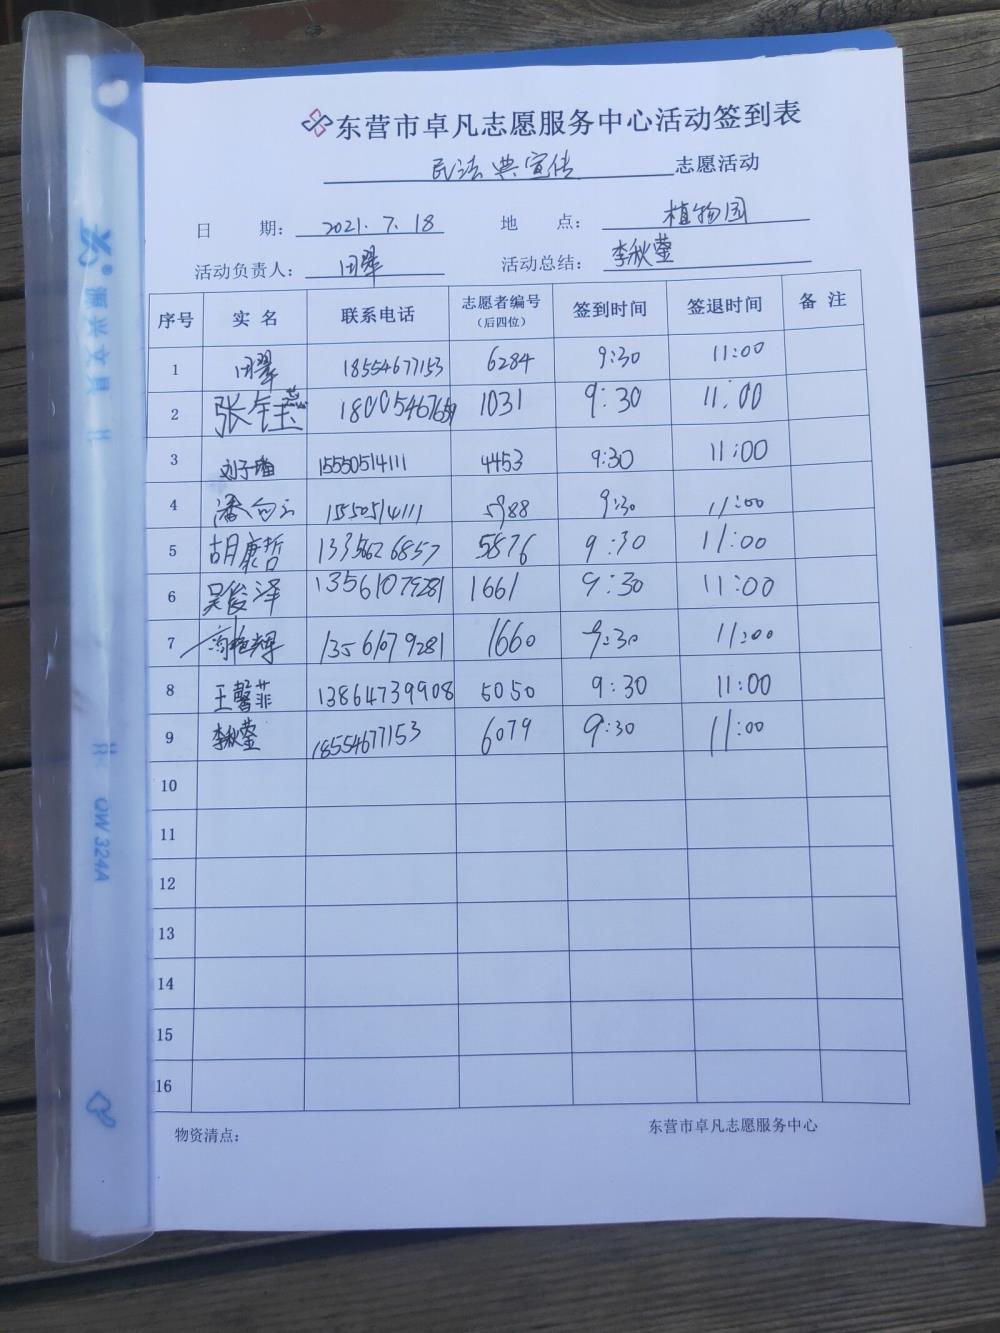 东营市卓凡志愿服务中心活动签到表
民法典宣传 志愿活动
日 期： 2021.7.18 地 点： 植物园
活动负责人： 田翠 活动总结： 李秋莹
序号 实 名 联系电话 志愿者编号（后四位） 签到时间 签退时间 备 注
1 田翠 18554677153 6284 9:30 11:00
2 张钰蕊 18005467659 1031 9:30 11:00
3 刘子瑜 15550514111 4453 9:30 11:00
4 潘向云 1550514111 5988 9:30 11:00
5 胡康哲 13356626857 5876 9:30 11:00
6 吴俊泽 13561079281 1661 9:30 11:00
7 13561079281 1660 9:30 11:00
8 王馨菲 13864739908 5050 9:30 11:00
9 李秋莹 18554677153 6079 9:30 11:00
10
11
12
13
14
15
16
物资清点： 东营市卓凡志愿服务中心
QW324A